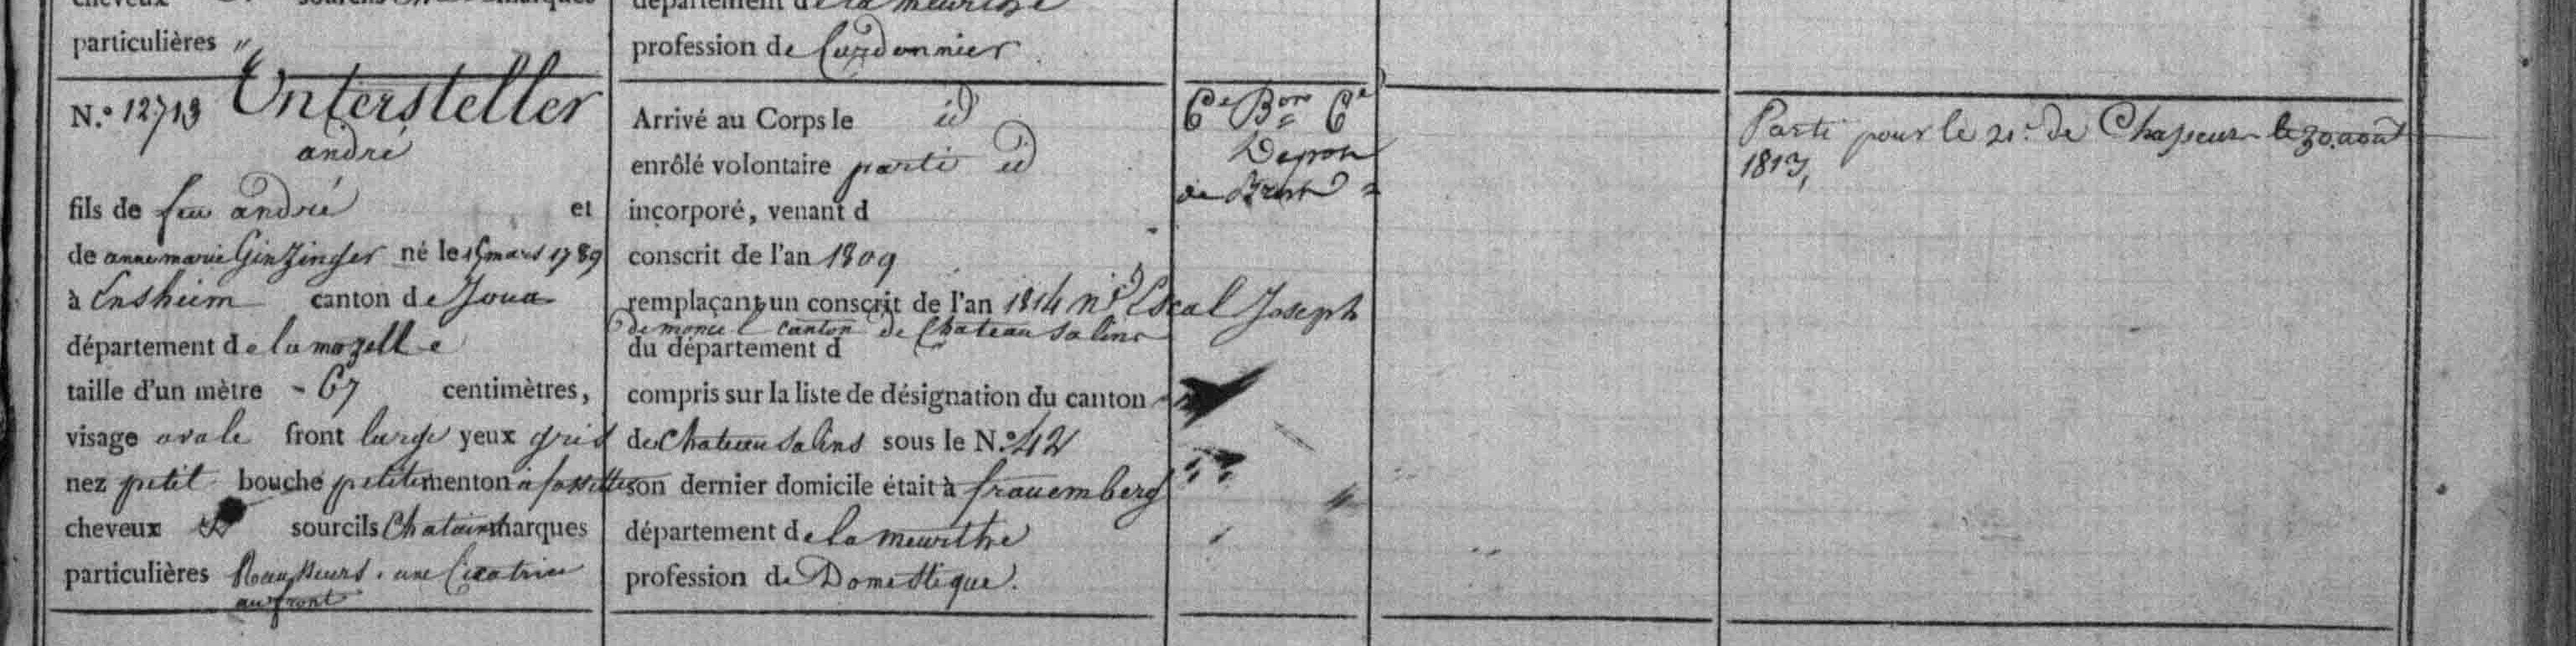 particulières "
N.o 12713 Untersteller
andré
fils de feu andré et
de anne marie Ginzinger né le 15 mars 1789
à Ensheim canton de Joua
département de la mozelle
taille d'un mètre - 67 centimètres,
visage ovale front large yeux gris
nez petit bouche petite menton à fossette
cheveux sourcils Chatains marques
particulières Rousseurs. une Cicatrice
au front
département de la meurthe
profession de Cordonnier
Arrivé au Corps le id
enrôlé volontaire parti id
incorporé, venant d
conscrit de l'an 1809
remplaçant un conscrit de l'an 1814 né Escal Joseph
de moncel canton de Chateau Salins
du département d
compris sur la liste de désignation du canton
de Chateau Salins sous le N.o 42
son dernier domicile était à frauemberg
département de la meurthe
profession de Domestique.
6e Bon 6e
de Brest
Parti pour le 21e de Chasseur le 30 août
1813,